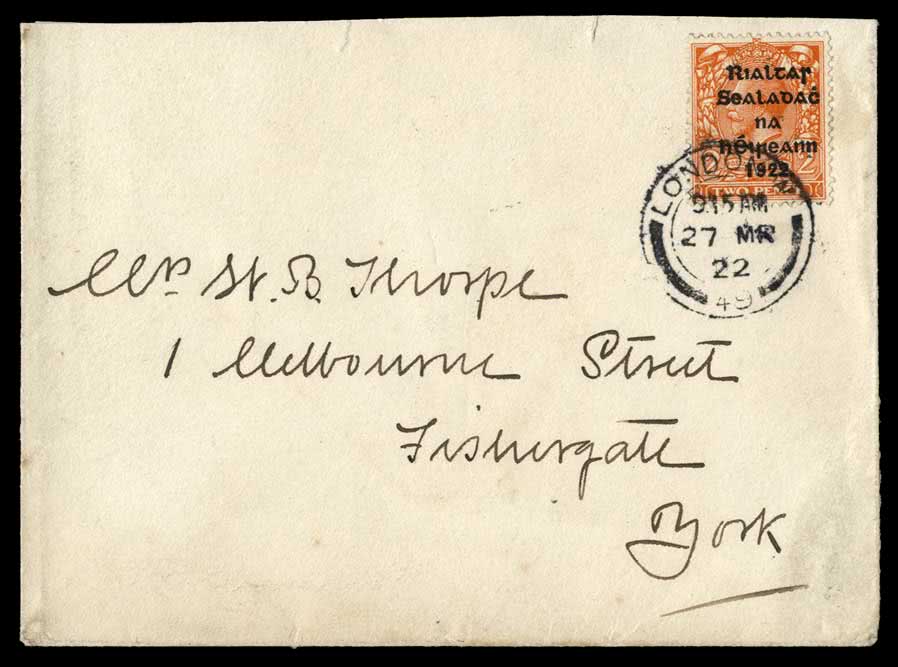 Rialtas
Sealadaċ
na
hÉireann
1922
TWO PEN
LONDON W
9.15 AM
27 MR
22
49
Mrs W. B. Thorpe
1 Melbourne Street
Fishergate
York